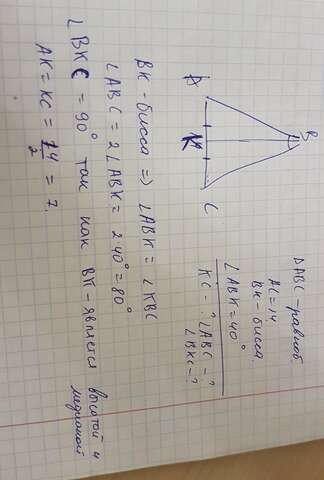 B
A
K
C
ΔABC - равноб.
AC = 14
BK - бисса.
∠ABK = 40°
KC - ? ∠ABC - ?
∠BKC - ?
BK - бисса => ∠ABK = ∠KBC
∠ABC = 2∠ABK = 2·40° = 80°
∠BKC = 90° так как BK - является высотой и медианой
AK = KC = 14/2 = 7.